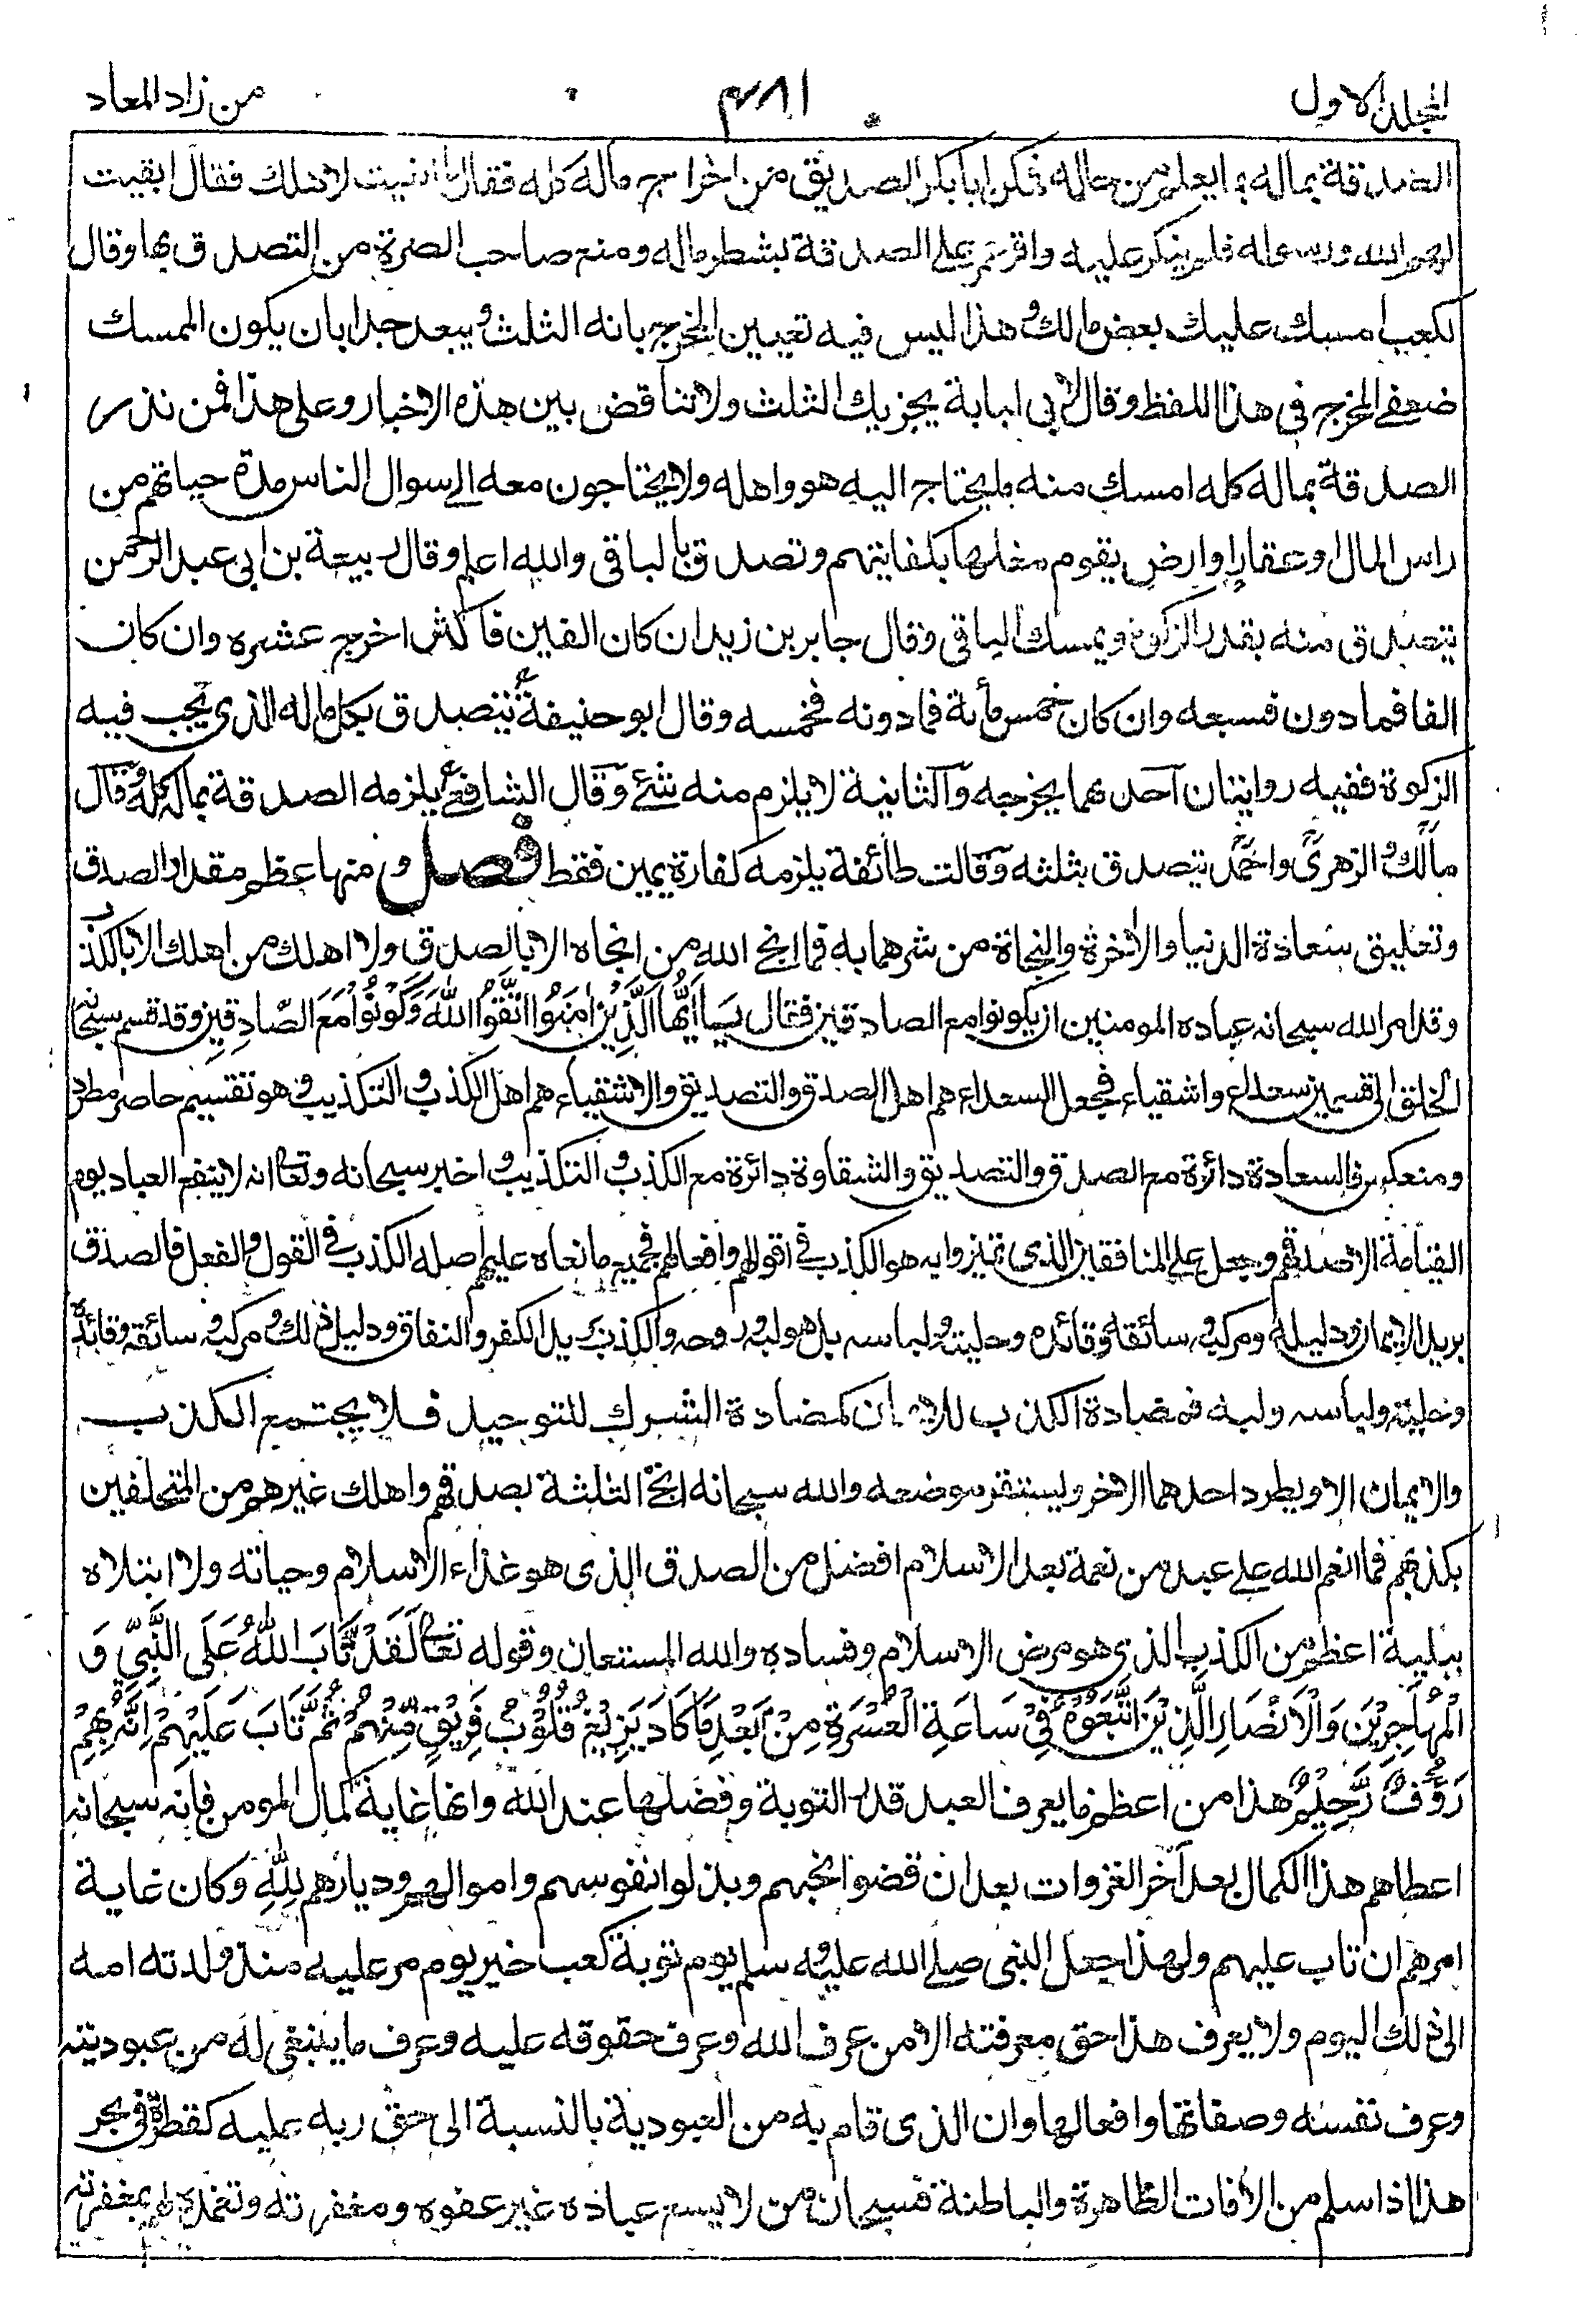 المجلد الاول ٤٨١ من زاد المعاد
الصدقة بماله بما يعلم من حاله فمكن ابابكر الصديق من اخراج ماله كله فقال ما ابقيت لاهلك فقال ابقيت
لهم الله ورسوله فلم ينكر عليه واقر عمر على الصدقة بشطر ماله ومنع صاحب الصرة من التصدق بها وقال
لكعب امسك عليك بعض مالك وهذا ليس فيه تعيين المخرج بانه الثلث ويبعد جدا بان يكون الممسك
ضعفى المخرج فى هذا اللفظ وقال لابى لبابة يجزيك الثلث ولا تناقض بين هذه الاخبار وعلى هذا فمن نذر
الصدقة بماله كله امسك منه ما يحتاج اليه هو واهله ولا يحتاجون معه الى سوال الناس مدة حياتهم من
راس المال او عقار او ارض يقوم مغلها بكفايتهم وتصدق بالباقى والله اعلم وقال ربيعة بن ابى عبد الرحمن
يتصدق منه بقدر الزكوة ويمسك الباقى وقال جابر بن زيد ان كان الفين فاكثر اخرج عشره وان كان
الفا فما دون فسبعه وان كان خمس مأية فما دونه فخمسه وقال ابو حنيفة يتصدق بكل ماله الذى يجب فيه
الزكوة ففيه روايتان احدهما يخرجه والثانية لا يلزم منه شئ وقال الشافعى يلزمه الصدقة بماله كله وقال
مالك والزهرى واحمد يتصدق بثلثه وقالت طائفة يلزمه كفارة يمين فقط فصل ومنها عظم مقدار الصدق
وتعليق سعادة الدنيا والاخرة والنجاة من شرهما به فما انجى الله من انجاه الا بالصدق ولا اهلك من اهلك الا بالكذب
وقد امر الله سبحانه عباده المومنين ان يكونوا مع الصادقين فقال يَا اَيُّهَا الَّذِيْنَ اٰمَنُوا اتَّقُوا اللهَ وَكُوْنُوْا مَعَ الصَّادِقِيْنَ وقد قسم سبحانه
الخلق الى قسمين سعداء واشقياء فجعل السعداء هم اهل الصدق والتصديق والاشقياء هم اهل الكذب والتكذيب وهو تقسيم حاصر مطرد
ومنعكس فالسعادة دائرة مع الصدق والتصديق والشقاوة دائرة مع الكذب والتكذيب واخبر سبحانه وتعالى انه لا ينفع العباد يوم
القيامة الا صدقهم وجعل علم المنافقين الذى تميزوا به هو الكذب فى اقوالهم وافعالهم فجميع ما نعاه عليهم اصله الكذب فى القول والفعل فالصدق
بريد الايمان ودليله ومركبه وسائقه وقائده وحليته ولباسه بل هو لبه وروحه والكذب بريد الكفر والنفاق ودليل ذلك ومركبه وسائقه وقائده
وحليته ولباسه ولبه فمضادة الكذب للايمان كمضادة الشرك للتوحيد فلا يجتمع الكذب
والايمان الا ويطرد احدهما الاخر ويستقر موضعه والله سبحانه انجى الثلثة بصدقهم واهلك غيرهم من المتخلفين
بكذبهم فما انعم الله على عبد من نعمة بعد الاسلام افضل من الصدق الذى هو غذاء الاسلام وحياته ولا ابتلاه
ببلية اعظم من الكذب الذى هو مرض الاسلام وفساده والله المستعان وقوله تعالى لَقَدْ تَّابَ اللهُ عَلَى النَّبِيِّ وَ
الْمُهَاجِرِيْنَ وَالْاَنْصَارِ الَّذِيْنَ اتَّبَعُوْهُ فِيْ سَاعَةِ الْعُسْرَةِ مِنْ بَعْدِ مَا كَادَ يَزِيْغُ قُلُوْبُ فَرِيْقٍ مِّنْهُمْ ثُمَّ تَابَ عَلَيْهِمْ اِنَّهٗ بِهِمْ
رَؤُفٌ رَّحِيْمٌ هذا من اعظم ما يعرف العبد قدر التوبة وفضلها عند الله وانها غاية كمال المومن فانه سبحانه
اعطاهم هذا الكمال بعد آخر الغزوات بعد ان قضوا نحبهم وبذلوا نفوسهم واموالهم وديارهم لله وكان غاية
امرهم ان تاب عليهم ولهذا جعل النبى صلى الله عليه وسلم يوم توبة كعب خير يوم مر عليه منذ ولدته امه
الى ذلك اليوم ولا يعرف هذا حق معرفته الا من عرف الله وعرف حقوقه عليه وعرف ما ينبغى له من عبوديته
وعرف نفسه وصفاتها وافعالها وان الذى قام به من العبودية بالنسبة الى حق ربه عليه كقطرة فى بحر
هذا اذا سلم من الأفات الظاهرة والباطنة فسبحان من لا يسع عباده غير عفوه ومغفرته وتغمده لهم بمغفرته